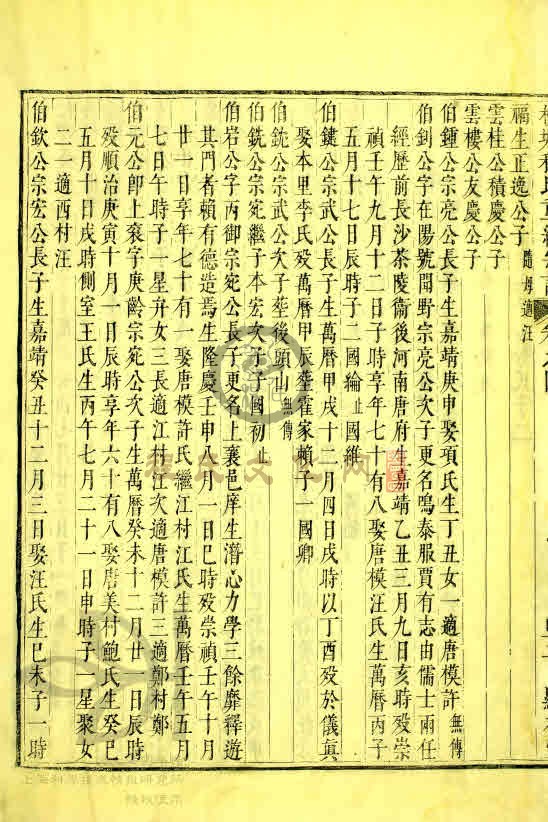 福生正造公子隨母適汪
雲桂公積慶公子
雲樓公友慶公子
伯鍾公宗亮公長子生嘉靖庚申娶項氏生丁丑女一適唐模許無傳
伯釗公字在陽號閒野宗亮公次子更名鳴泰服賈有志由儒士兩任
經歷前長沙茶陵衞後河南唐府生嘉靖乙丑三月九日亥時殁崇
禎壬午九月十二日子時享年七十有八娶唐模汪氏生萬曆丙子
五月十七日辰時子二國綸止國維
伯鍵公宗武公長子生萬曆甲戌十二月四日戌時以丁酉殁於儀眞
娶本里李氏殁萬曆甲辰葬霍家賴子一國卿
伯鈗公宗武公次子葬後頭山無傳
伯銑公宗宛繼子本宏次子子國初止
伯岩公字丙御宗宛公長子更名上襄邑庠生潛心力學三餘靡釋遊
其門者賴有德造焉生隆慶壬申八月一日巳時殁崇禎壬午十月
廿一日享年七十有一娶唐模許氏繼江村江氏生萬曆壬午五月
七日午時子一星弁女三長適江村江次適唐模許三適鄭村鄭
伯元公卽上袞字庚齡宗宛公次子生萬曆癸未十二月廿一日辰時
殁順治庚寅十月一日辰時享年六十有八娶唐美村鮑氏生癸巳
五月十日戌時側室王氏生丙午七月二十一日申時子一星聚女
二一適西村汪
伯欽公宗宏公長子生嘉靖癸丑十二月三日娶汪氏生巳未子一時